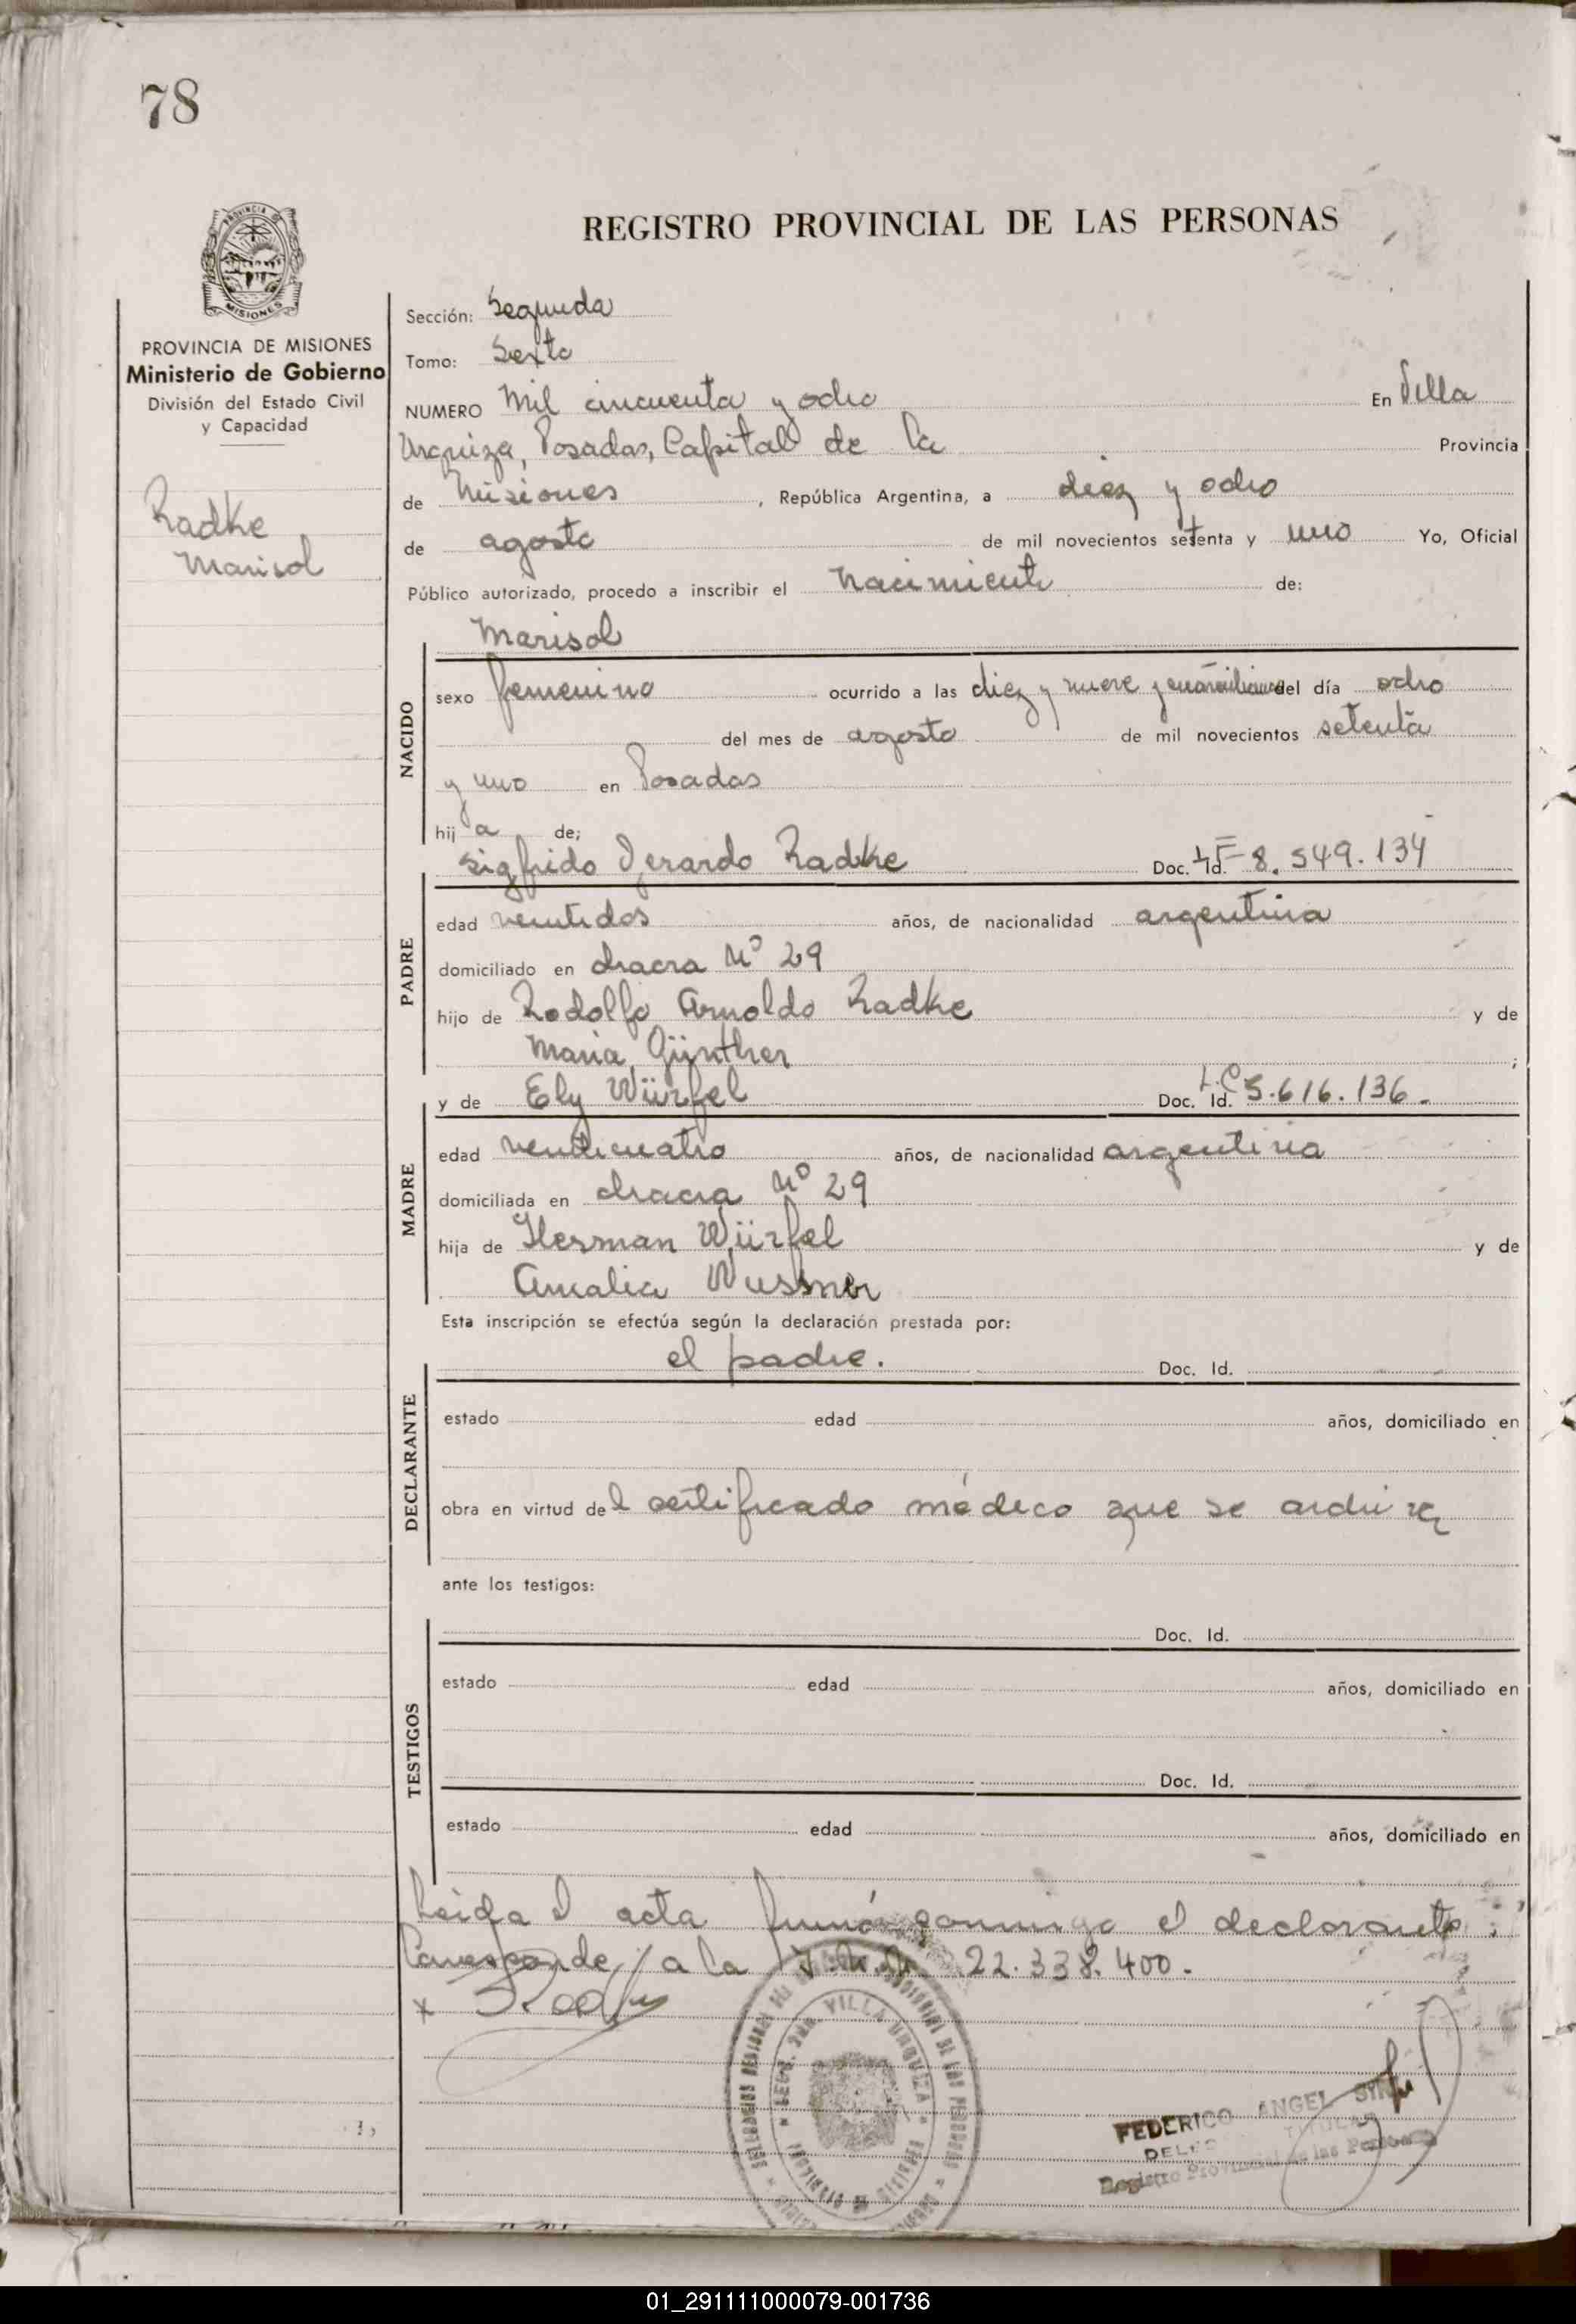 78
REGISTRO PROVINCIAL DE LAS PERSONAS
MISIONES
PROVINCIA DE MISIONES
Ministerio de Gobierno
División del Estado Civil
y Capacidad
Radke
Marisol
Sección: Segunda
Tomo: Sexto
NUMERO Mil cincuenta y ocho En Villa
Urquiza, Posadas, Capital de la Provincia
de Misiones, República Argentina, a diez y ocho
de agosto de mil novecientos setenta y uno Yo, Oficial
Público autorizado, procedo a inscribir el nacimiento de:
Marisol
NACIDO
sexo femenino ocurrido a las diez y nueve y del día ocho
del mes de agosto de mil novecientos setenta
y uno en Posadas
hij a de;
Sigfrido Gerardo Radke Doc. Id. 8.549.134
PADRE
edad veintidos años, de nacionalidad argentina
domiciliado en chacra Nº 29
hijo de Rodolfo Arnoldo Radke y de
Maria Günther ;
y de Ely Würfel Doc. Id. L.C 5.616.136.
MADRE
edad veinticuatro años, de nacionalidad argentina
domiciliada en chacra Nº 29
hija de Herman Würfel y de
Amalia
Esta inscripción se efectúa según la declaración prestada por:
el padre. Doc. Id.
DECLARANTE
estado edad años, domiciliado en
obra en virtud del certificado médico que se archiva
ante los testigos:
Doc. Id.
TESTIGOS
estado edad años, domiciliado en
Doc. Id.
estado edad años, domiciliado en
Leida el acta firmó conmigo el declarante.
Corresponde a la 22.338.400.
x
VILLA URQUIZA
FEDERICO ANGEL
TITULAR
Registro Provincial de las Personas
01_291111000079-001736